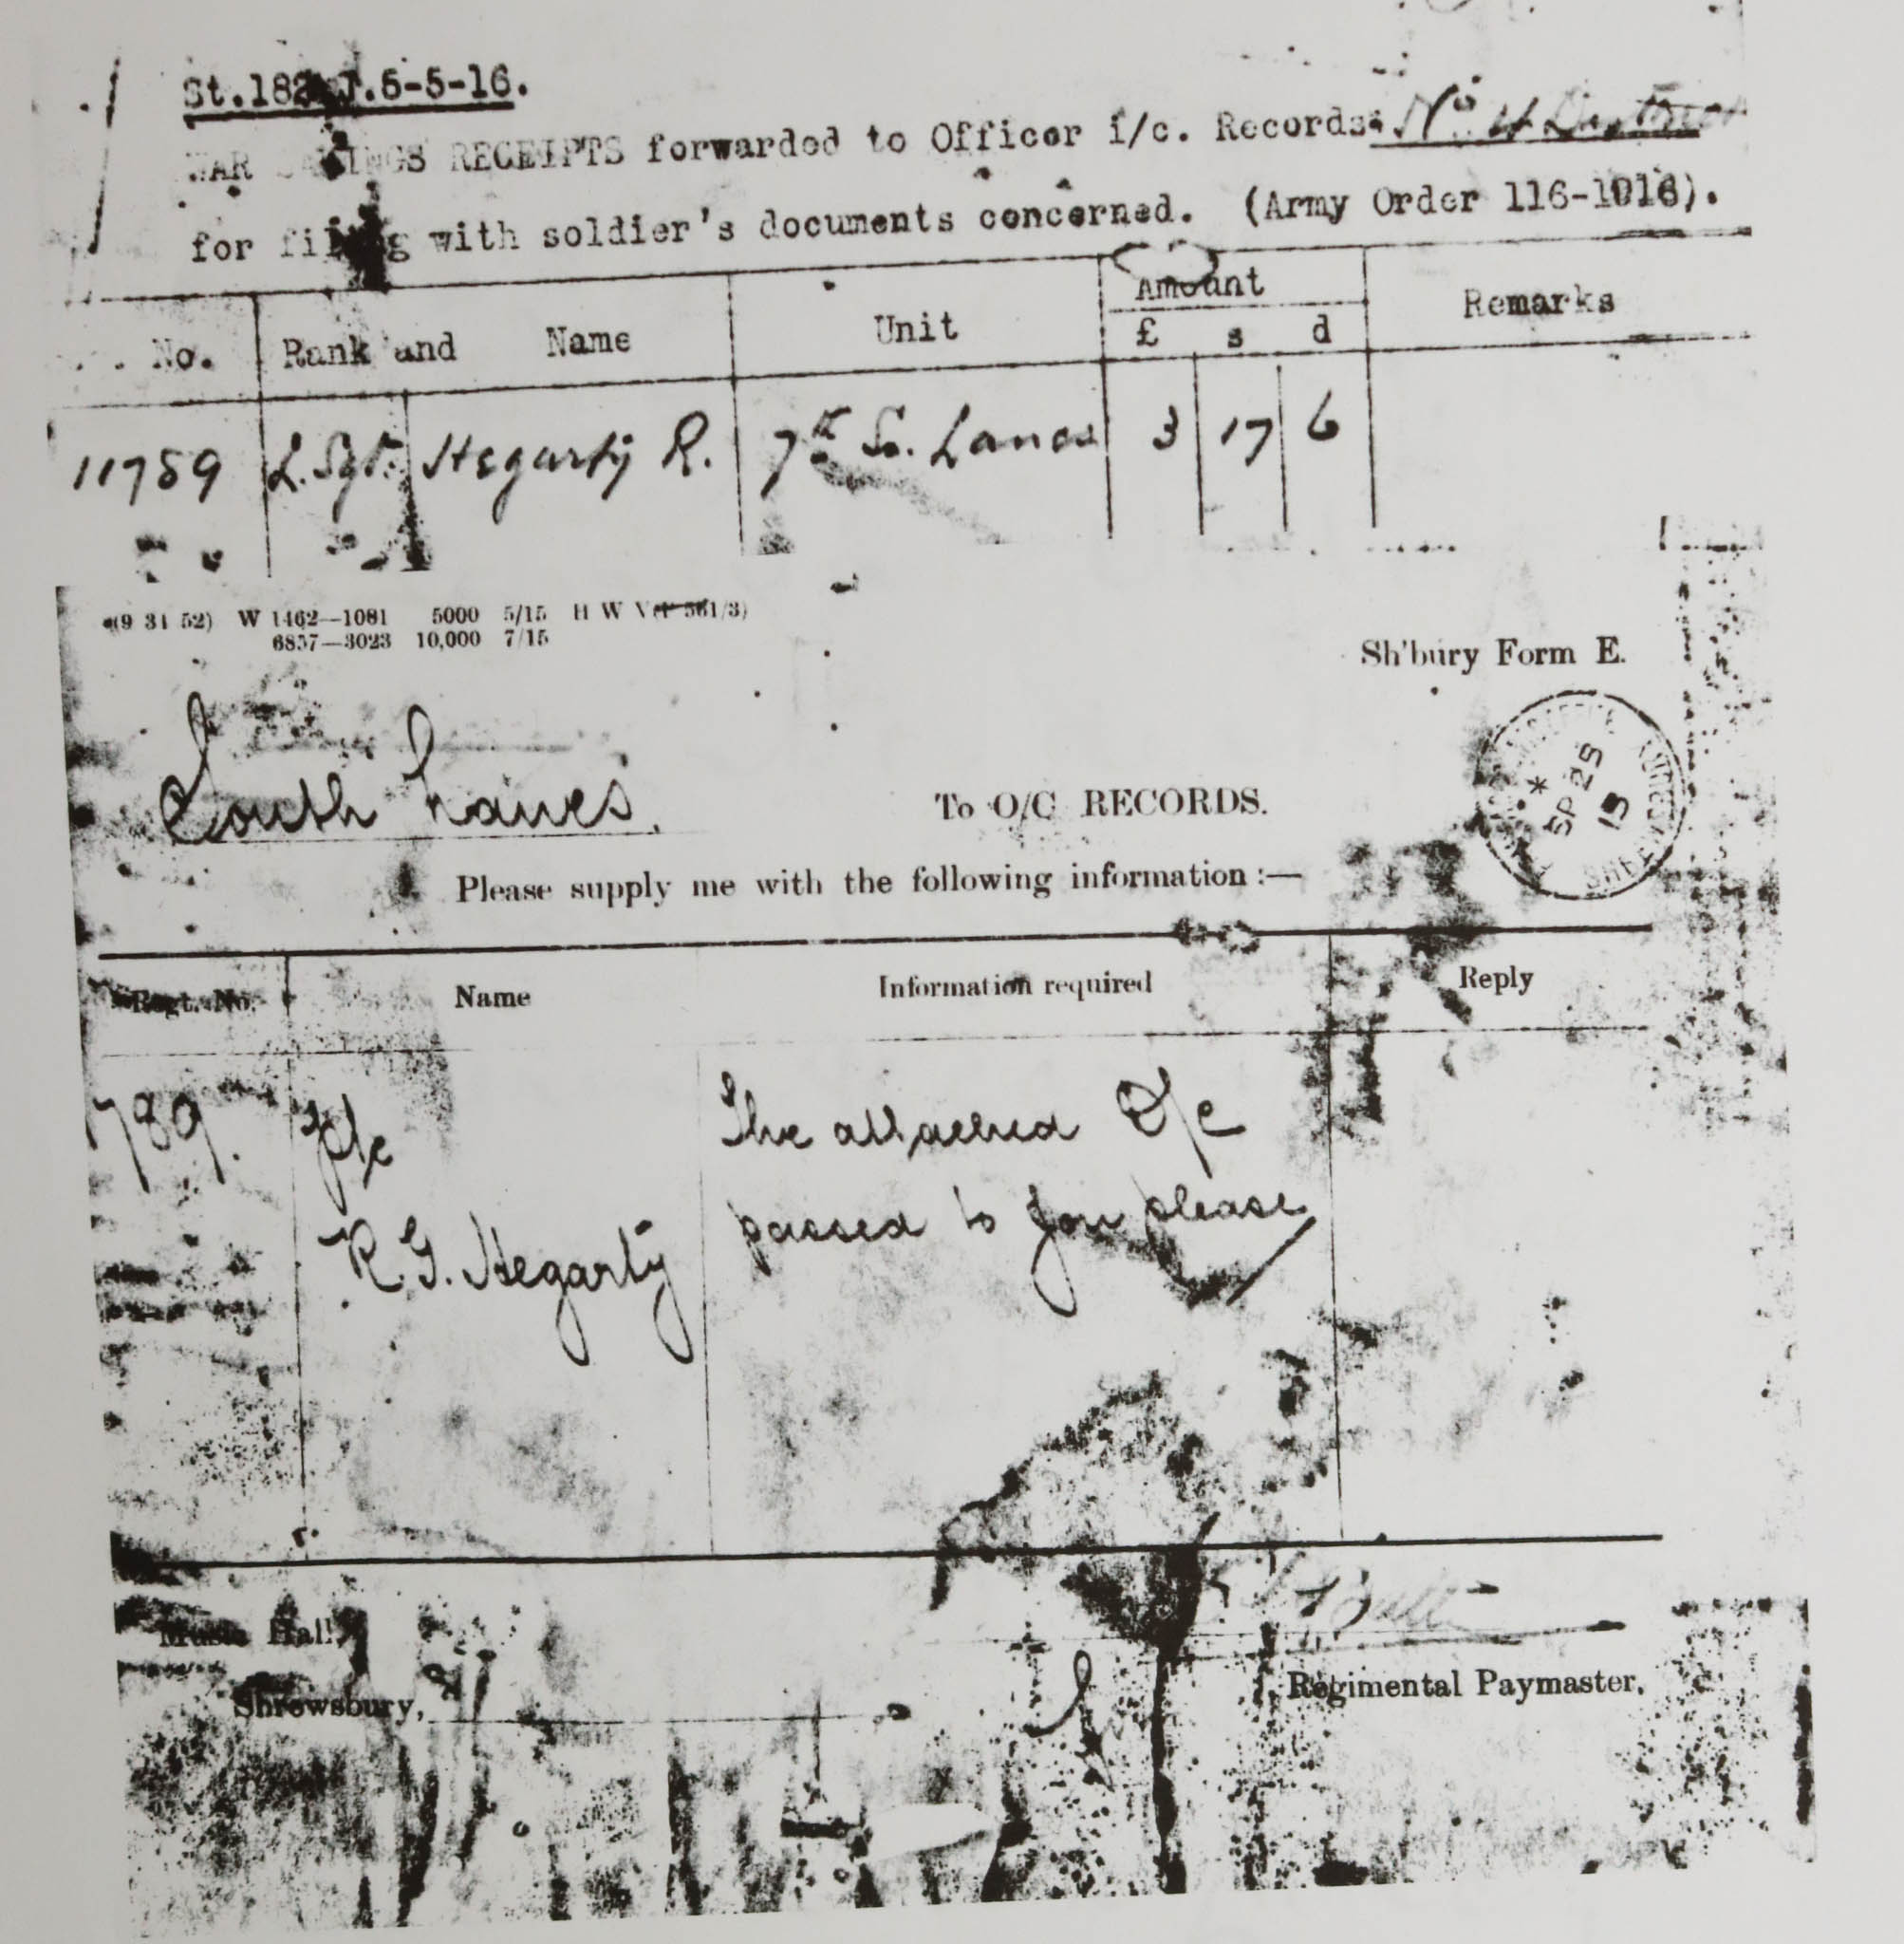 St.182 J.5-5-16.
WAR SAVINGS RECEIPTS forwarded to Officer i/c. Records. No. 4 District
for filing with soldier's documents concerned. (Army Order 116-1916).
No. Rank and Name Unit Amount Remarks
£ s d
11759 L.Sgt. Hegarty R. 7th So. Lancs 3 17 6
(9 31 52) W 1462—1081 5000 5/15 H W V
6857—3023 10,000 7/15
Sh'bury Form E.
South Lancs.
To O/C RECORDS.
SP 25
15
Please supply me with the following information :—
Regt. No. Name Information required Reply
789. Pte The attached
R.G. Hegarty passed to you please
Music Hall,
Shrewsbury,
Regimental Paymaster.